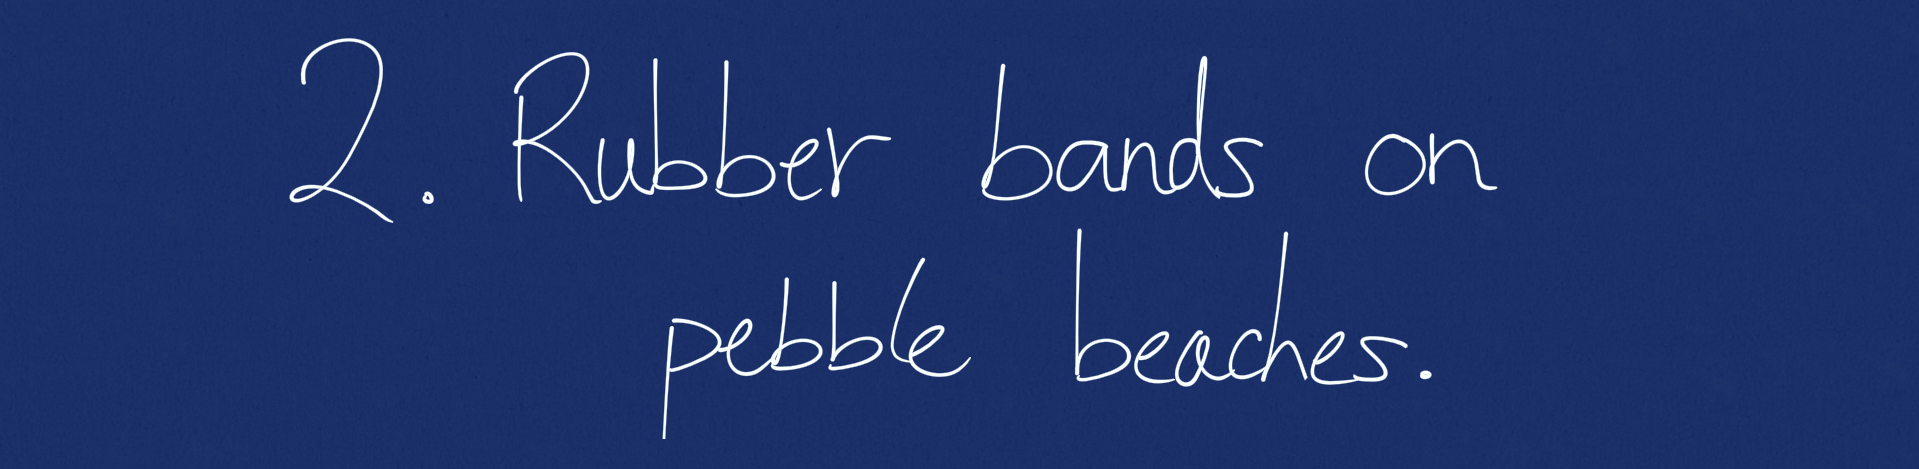 2. Rubber bands on
pebble beaches.